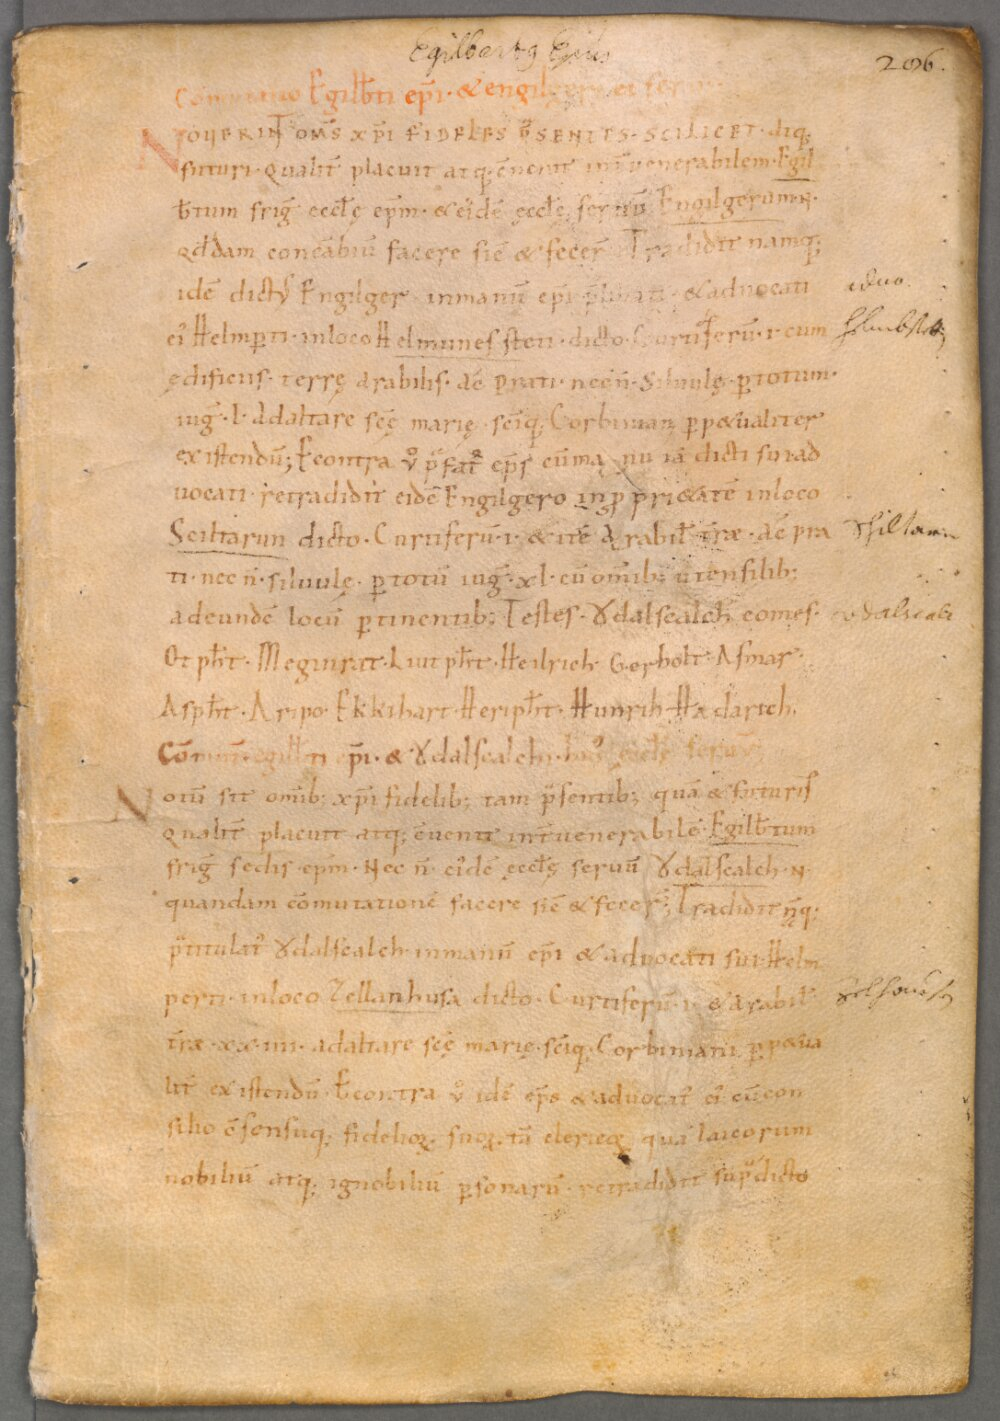 Egilbertꝰ Ep̄us
206.
Com̄utatio Egilb̄ti ep̄i · & engilgeri ei ser
NOVERINT OM̄S XP̄I FIDELES P̄SENTES · SCILICET · atq;
futuri · Qualit̄ placuit atq; c̄uenit int̄ venerabilem · Egil
b̄tum frig̃ eccłę ep̄m · & ei'dē ęccłę seruū Engilgerum · N ·
Qđdam concābiū facere sic̄ & fecer̄ · Tradidit namq;
idē dictꝰ Engilger · inmanū ep̄i p̄libati · & aduocati
eiꝰ Helmꝑti · inloco Helmunessteti · dicto · Curtiferū · i · cum
ędificiis · terrę arabilis · ac̄ prati · necn̄ · Siluulę · ꝑtotum ·
iug̃ · l · Adaltare sc̄ę marię · sc̄iq; Corbiniani ꝑpetualiter
existendū; Econtra v̊ p̄fat̄ ep̄s cūma nu iā dicti sui ad
uocati · retradidit eidē Engilgero in ꝓ pri&atē inloco
Sciltarun dicto · Curtiferū · i · & itē Arabił t̄ræ · ac̄ pra
ti · nec n̄ · siluulę · ꝑ totū iug̃ · xl · cū om̄ib; utensilib;
adeundē locū ꝑtinentib; Testes · Ɣdalscalch comes ·
Otpħt · Meginrat · Liutpħt · Heilrich · Gerbolt · Asmar ·
Aspħt · Aripo · Ekkihart · Heripħt · Hunrih · Hadarich ·
Com̄ut̄ egilb̄ti ep̄i · & Ɣdalscalchi · huiꝰ eccłę serui;
Notū sit om̄ib; xp̄i fidelib; tam p̄sentib; quā & futuris
Qualit̄ placuit atq; c̄uenit int̄ venerabilē · Egilb̄tum
frig̃ sedis · ep̄m · Nec n̄ · ei'dē ęccłę seruū Ɣdalscalch · N ·
quandam cōmutationē facere sic̄ & fecer̄; Tradidit nāq;
p̄titulatꝰ Ɣdalscalch · inmanū ep̄i & aduocati sui · Helm
perti · inloco Zellanhusa dicto · Curtiferū · i · & Arabił
t̄ræ · xx · iiii · adaltare sc̄ę marię · sc̄iq; Corbiniani ꝑp&ua
lit̄ existendū · Econtra v̊ idē ep̄s & aduocatꝰ eiꝰ cū con
silio c̄sensuq; fidelioꝝ · suoꝝ · tā clericoꝝ quā laicorum
nobiliū atq; ignobiliū ꝑsonarū · retradidit sup̄dicto
aduo.
Helmbstett
Schiltarn
vdalscalc
Zelhausn